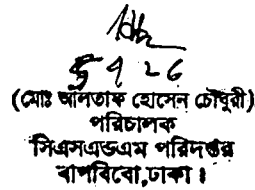 5 9 26
(মোঃ আলতাফ হোসেন চৌধুরী)
পরিচালক
সিএসএন্ডএম পরিদপ্তর
বাপবিবো,ঢাকা।